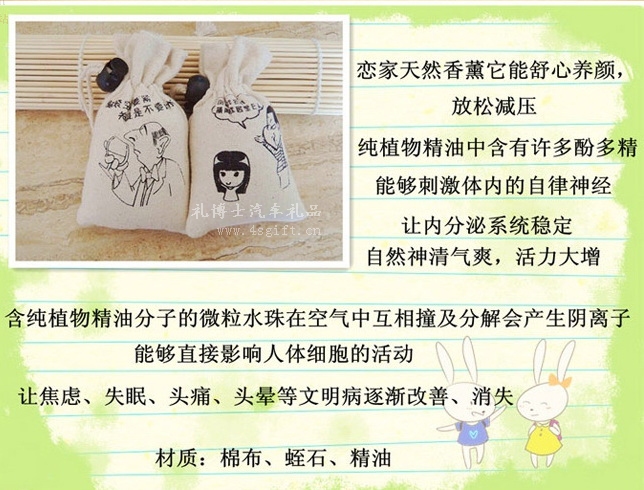 恋家天然香薰它能舒心养颜，
放松减压
纯植物精油中含有许多酚多精
能够刺激体内的自律神经
让内分泌系统稳定
自然神清气爽，活力大增
礼博士汽车礼品
www.4sgift.cn
含纯植物精油分子的微粒水珠在空气中互相撞及分解会产生阴离子
能够直接影响人体细胞的活动
让焦虑、失眠、头痛、头晕等文明病逐渐改善、消失
材质：棉布、蛭石、精油